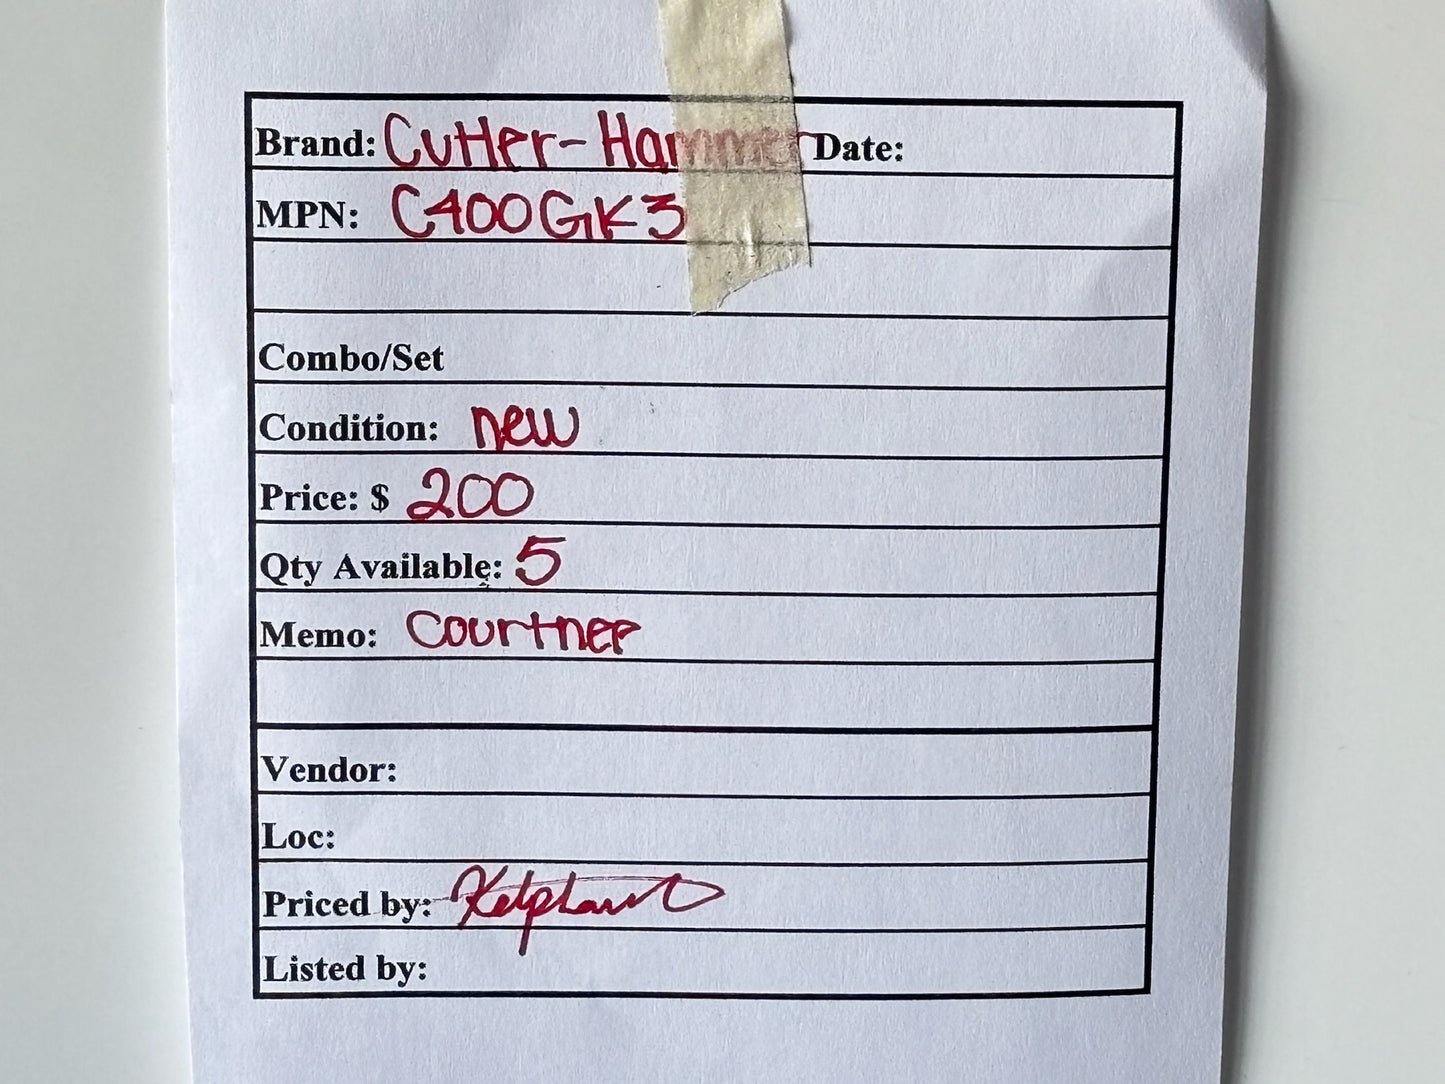 Brand: Cutler-Hammer Date:
MPN: C400GK3
Combo/Set
Condition: new
Price: $ 200
Qty Available: 5
Memo: Courtner
Vendor:
Loc:
Priced by:
Listed by: